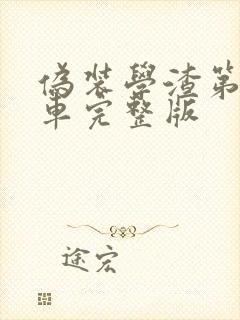 偽裝學渣第
車完整版
途宏